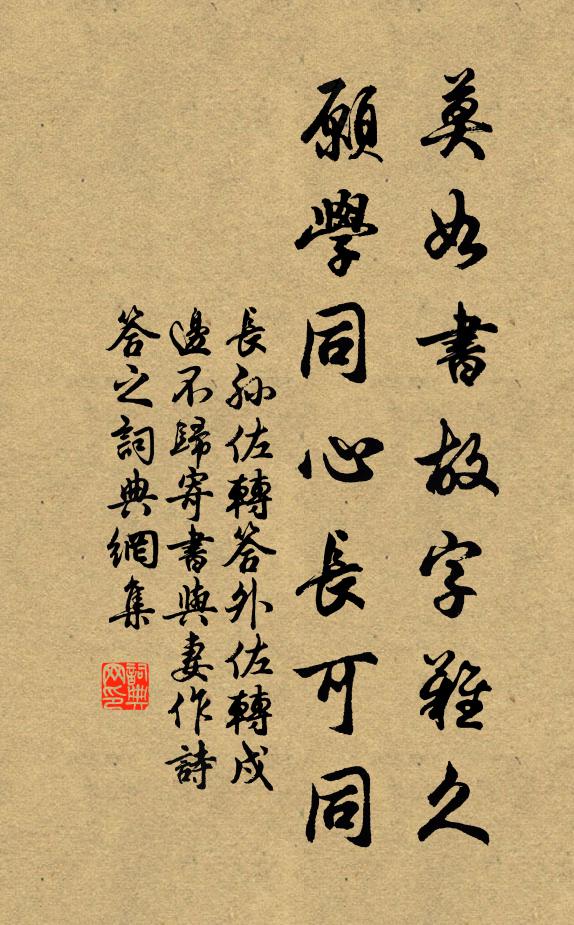 莫如書故字難久
願學同心長可同
長孫佐轉答外佐轉戍
邊不歸寄書與妻作詩
答之詞典網集
詞典
网印